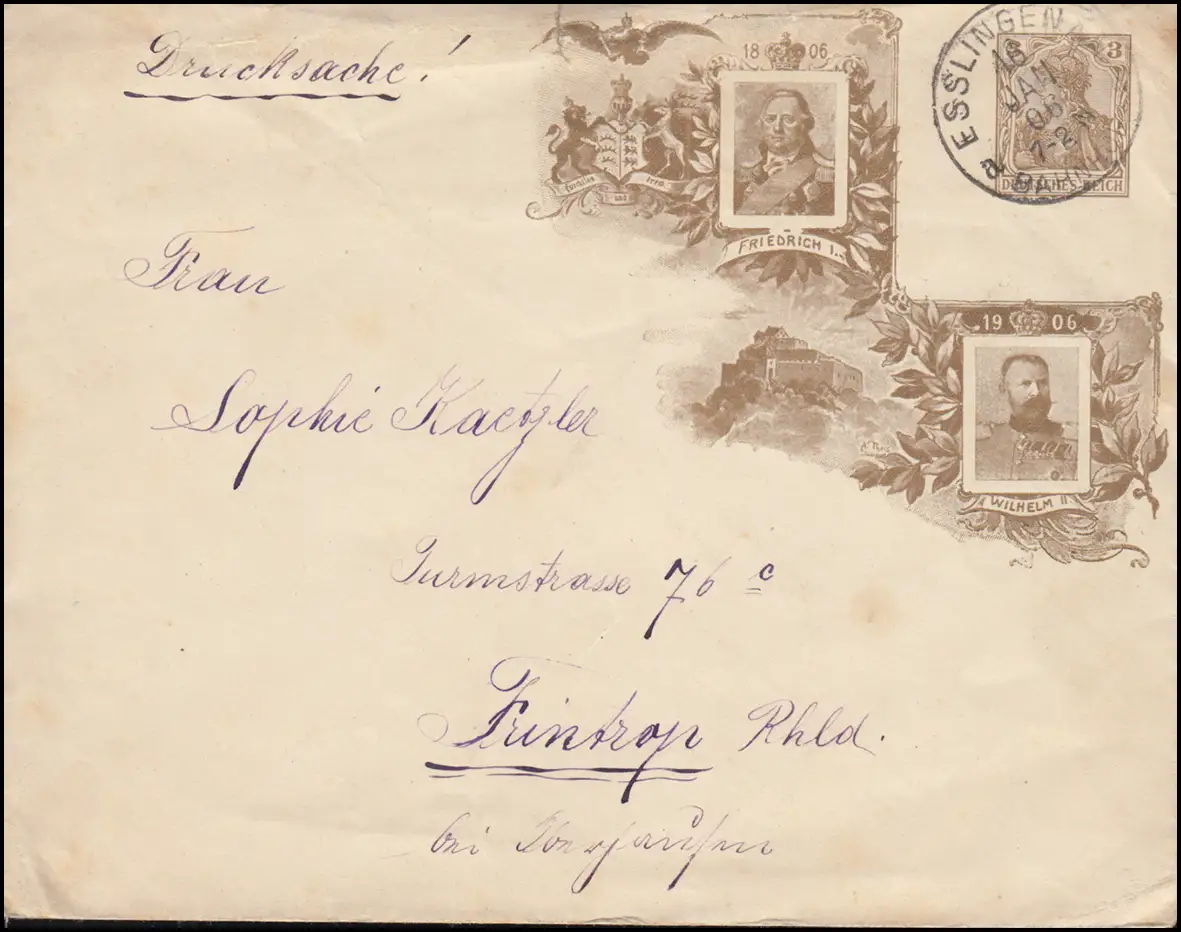 Drucksache!
1806
FRIEDRICH I.
Furchtlos und trew
3
DEUTSCHES REICH
ESSLINGEN
16
JAN
06
1-2 N
a BAHNH.
1906
WILHELM II.
Frau
Sophie Kaetzler
Turmstrasse 76 c
Frintrop Rhld.
bei Oberhausen